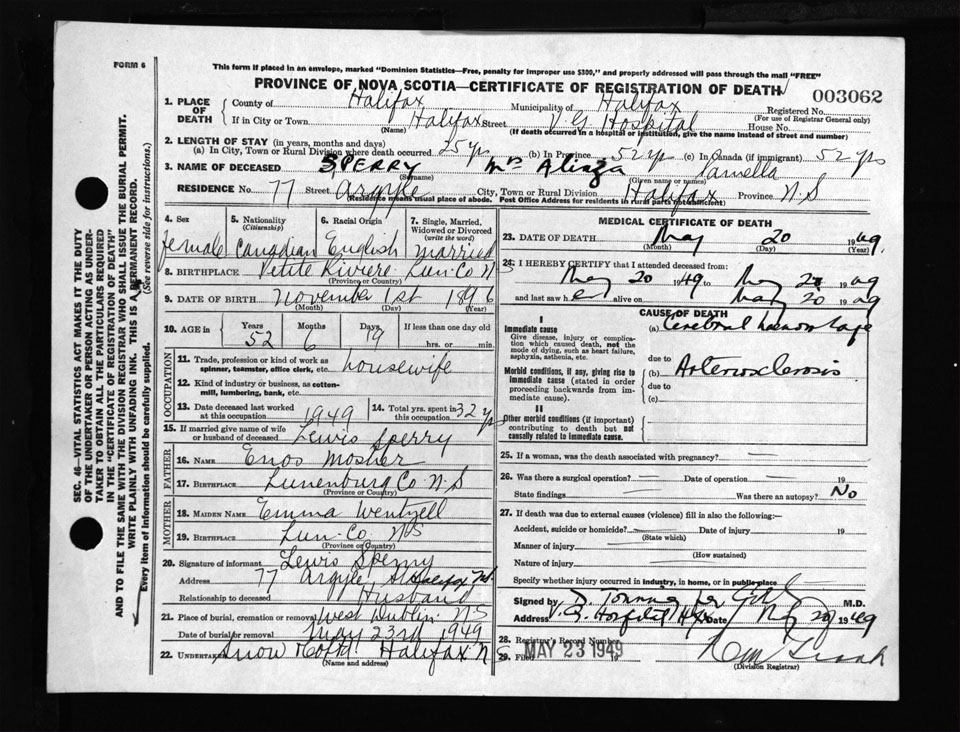 FORM 6
This form if placed in an envelope, marked "Dominion Statistics—Free, penalty for improper use $300," and properly addressed will pass through the mail "FREE"
PROVINCE OF NOVA SCOTIA—CERTIFICATE OF REGISTRATION OF DEATH
003062
1. PLACE OF DEATH { County of Halifax Municipality of Halifax Registered No.
(For use of Registrar General only)
If in City or Town Halifax Street V.G. Hospital House No.
(Name) (If death occurred in a hospital or institution, give the name instead of street and number)
2. LENGTH OF STAY (in years, months and days)
(a) In City, Town or Rural Division where death occurred 25 yrs (b) In Province 52 yr (c) In Canada (if immigrant) 52 yrs
3. NAME OF DECEASED SPERRY Mrs Alinza Pamella
(Surname) (Given name or names)
RESIDENCE No. 77 Street Argyle City, Town or Rural Division Halifax Province N.S
(Residence means usual place of abode. Post Office Address for residents in rural parts not sufficient)
4. Sex 5. Nationality (Citizenship) 6. Racial Origin 7. Single, Married, Widowed or Divorced (write the word)
female Canadian English married
8. BIRTHPLACE Petite Riviere Lun. Co. N S
(Province or Country)
9. DATE OF BIRTH November 1st 1896
(Month) (Day) (Year)
10. AGE in Years Months Days If less than one day old
52 6 19 hrs. or min.
OCCUPATION
11. Trade, profession or kind of work as spinner, teamster, office clerk, etc. housewife
12. Kind of industry or business, as cotton-mill, lumbering, bank, etc.
13. Date deceased last worked at this occupation 1949 14. Total yrs. spent in this occupation 32 yrs
15. If married give name of wife or husband of deceased Lewis Sperry
FATHER
16. NAME Enos Mosher
17. BIRTHPLACE Lunenburg Co. N.S
(Province or Country)
MOTHER
18. MAIDEN NAME Emma Wentzell
19. BIRTHPLACE Lun. Co. N.S
(Province or Country)
20. Signature of informant Lewis Sperry
Address 77 Argyle St Halifax N.S.
Relationship to deceased Husband
21. Place of burial, cremation or removal West Dublin N.S
Date of burial or removal May 23rd 1949
22. Undertaker Snow & Co Ltd Halifax N S
(Name and address)
MEDICAL CERTIFICATE OF DEATH
23. DATE OF DEATH May 20 1949
(Month) (Day)
24. I HEREBY CERTIFY that I attended deceased from:
May 20 1949 to May 20 1949
and last saw her alive on May 20 1949
CAUSE OF DEATH
I
Immediate cause (a) Cerebral haemorrhage
Give disease, injury or complication which caused death, not the mode of dying, such as heart failure, asphyxia, asthenia, etc.
due to
Morbid conditions, if any, giving rise to immediate cause (stated in order proceeding backwards from immediate). (b) Arteriosclerosis
due to
(c)
II
Other morbid conditions (if important) contributing to death but not causally related to immediate cause.
25. If a woman, was the death associated with pregnancy? —
26. Was there a surgical operation? — Date of operation — 19
State findings — Was there an autopsy? No
27. If death was due to external causes (violence) fill in also the following:—
Accident, suicide or homicide? — Date of injury — 19
(State which)
Manner of injury —
(How sustained)
Nature of injury —
Specify whether injury occurred in industry, in home, or in public place
Signed by M.D.
Address V.G. Hospital Hfx Date May 20 1949
28. Registrar's Record Number
29. Filed MAY 23 1949
(Division Registrar)
SEC. 46—VITAL STATISTICS ACT MAKES IT THE DUTY
OF THE UNDERTAKER OR PERSON ACTING AS UNDER-
TAKER TO OBTAIN ALL THE PARTICULARS REQUIRED
IN THE "CERTIFICATE OF REGISTRATION OF DEATH"
AND TO FILE THE SAME WITH THE DIVISION REGISTRAR WHO SHALL ISSUE THE BURIAL PERMIT.
WRITE PLAINLY WITH UNFADING INK. THIS IS A PERMANENT RECORD.
Every item of Information should be carefully supplied. (See reverse side for instructions.)